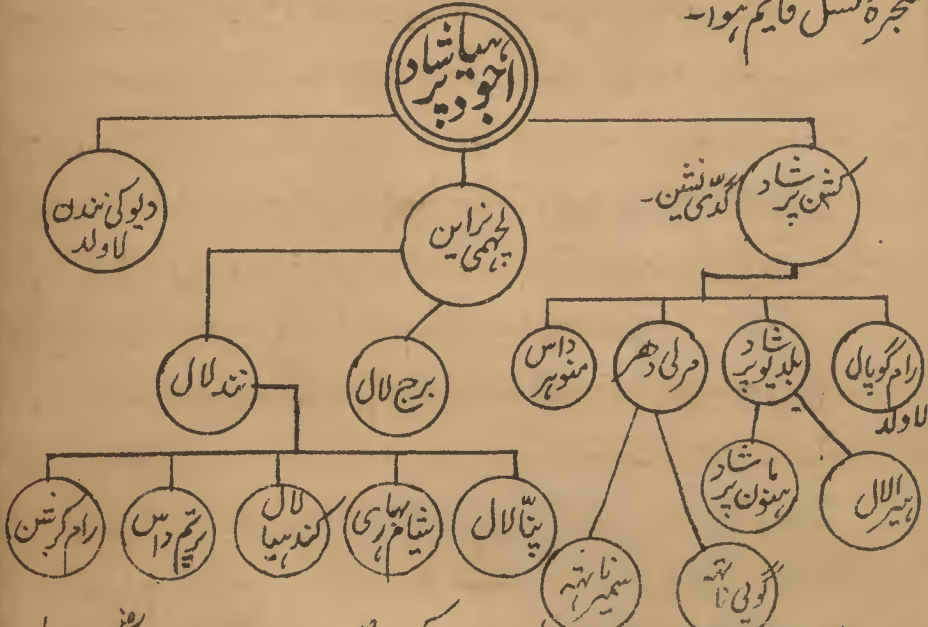 شجرہ نسل قایم ہوا۔
اجودہیا پرشاد
کشن پرشاد
گدّی نشین۔
لچہمی نراین
دیوکی نندن
لاولد
رام گوپال
لاولد
بلدیو پرشاد
مرلی دھر
منوہر داس
برج لال
نند لال
ہیرا لال
گوپی ناتہہ
سمیر ناتہہ
پنّا لال
شیام بہاری
کندہیا لال
پرتم داس
رام کرشن